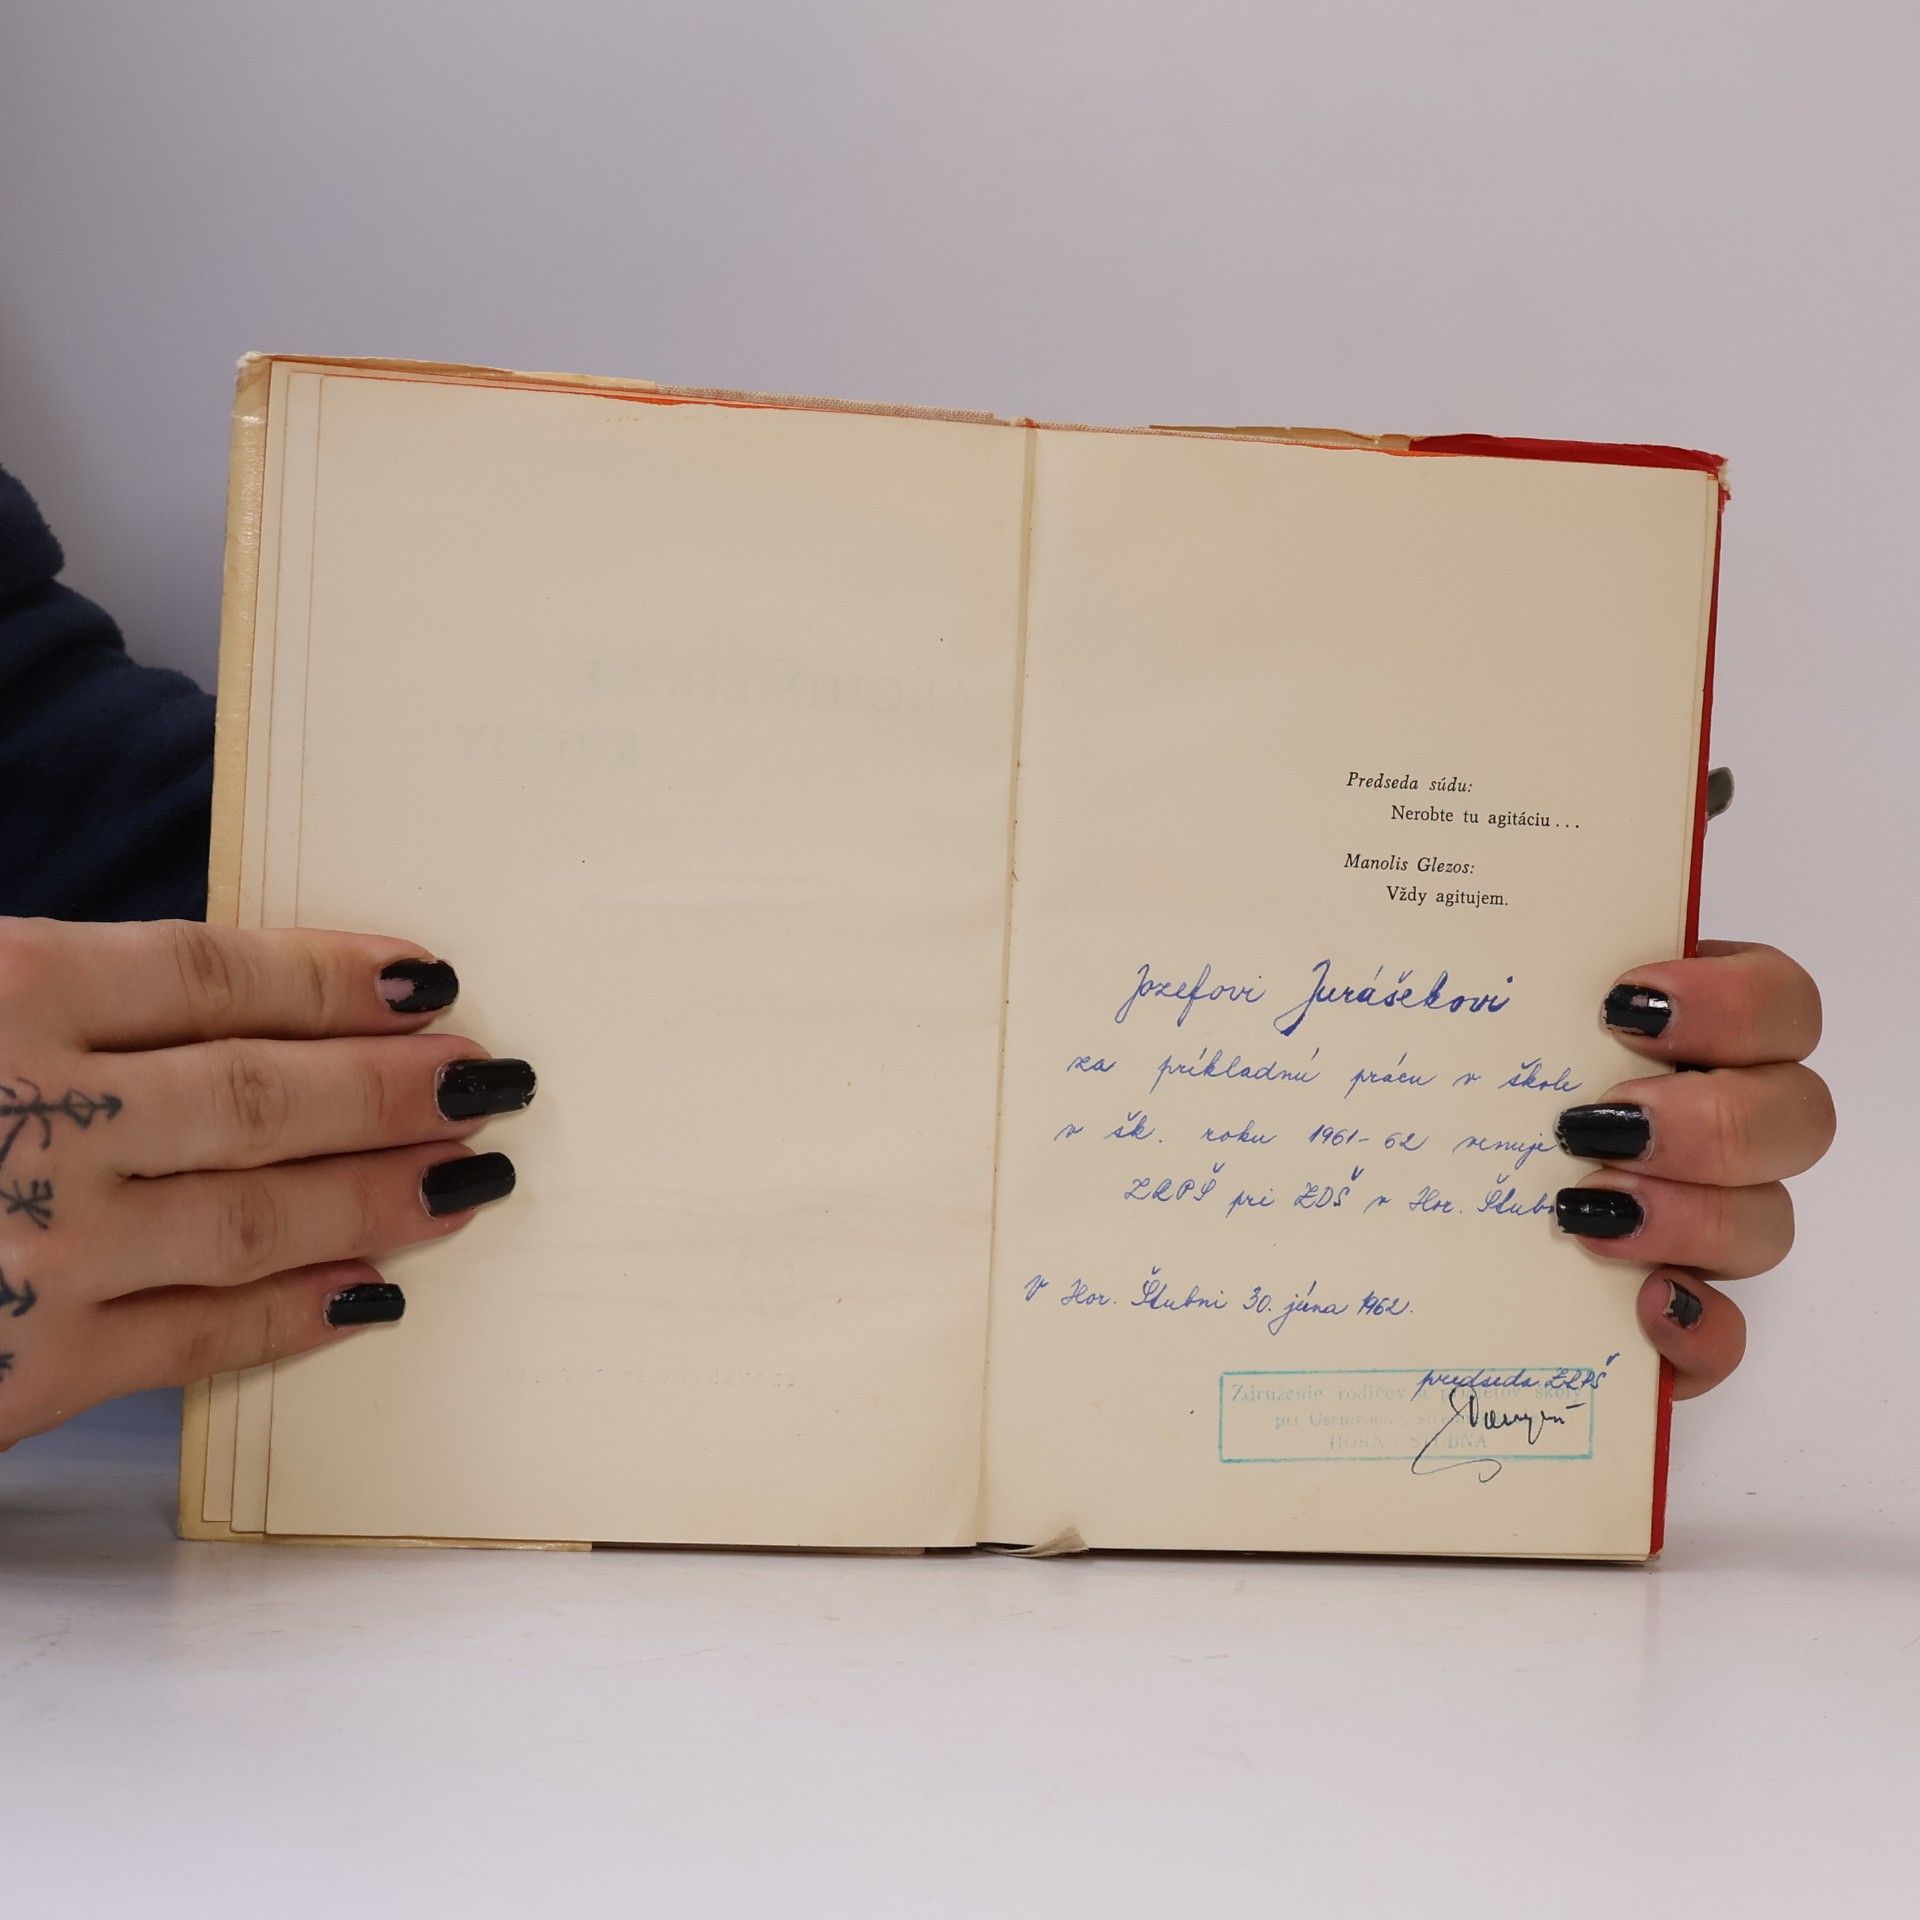 Predseda súdu:
Nerobte tu agitáciu...
Manolis Glezos:
Vždy agitujem.
Jozefovi Jurášekovi
za príkladnú prácu v škole
v šk. roku 1961-62 venuje
ZRPŠ pri ZDŠ v Hor. Štub
V Hor. Štubni 30. júna 1962.
predseda ZRPŠ
Združenie rodičov a priateľov školy
pri
HORN ŠTUBŇA